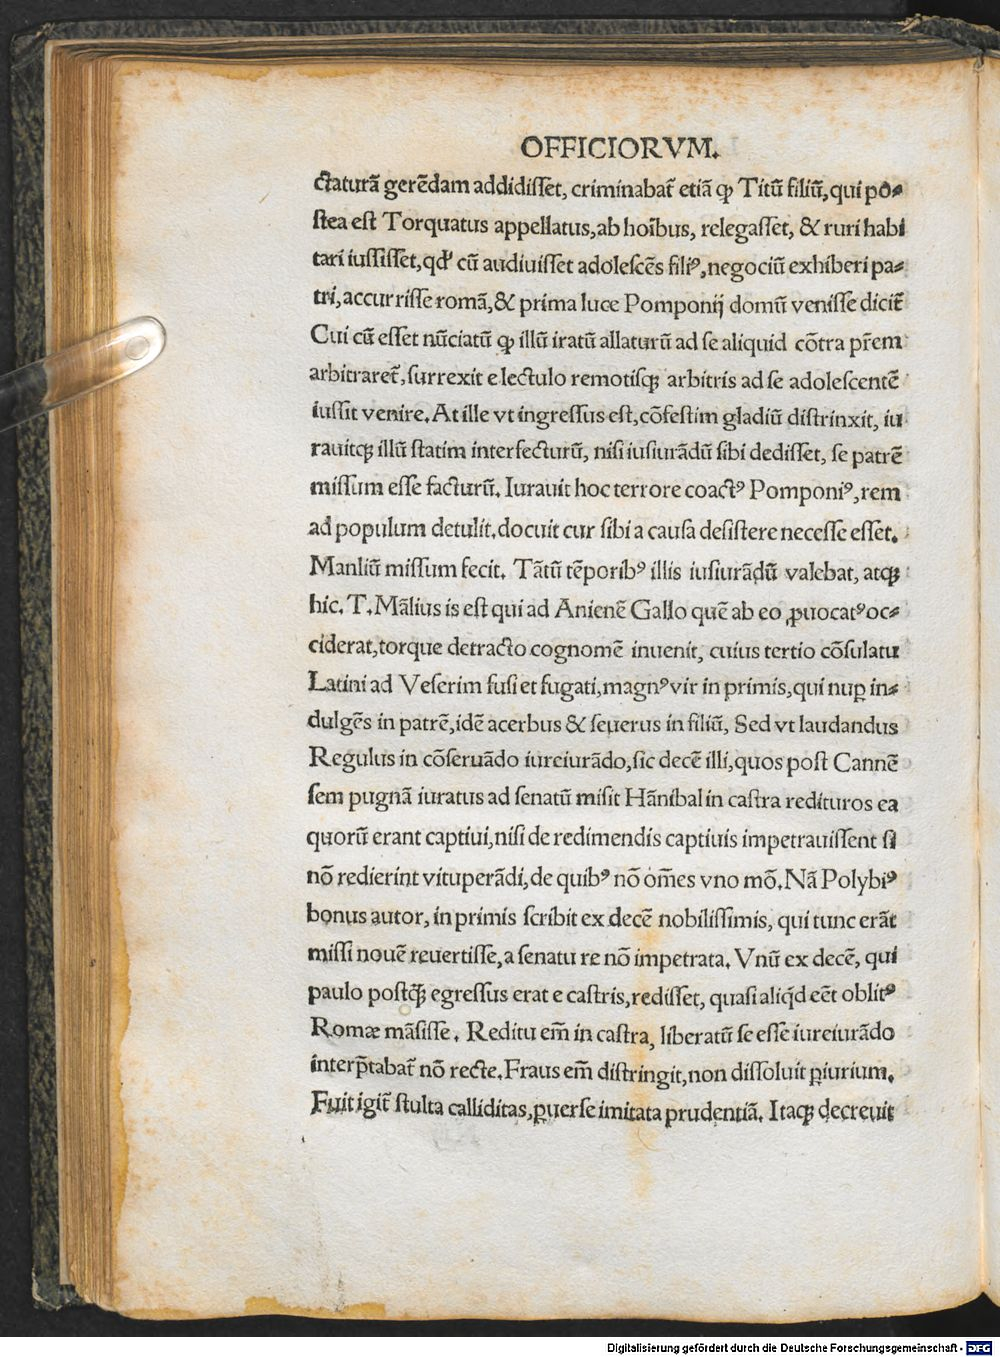 OFFICIORVM.
ctaturā gerēdam addidisset, criminabat᷑ etiā ꝙ Titū filiū, qui po⸗
stea est Torquatus appellatus, ab hoībus, relegasset, & ruri habi
tari iussisset, qd' cū audiuisset adolescēs fili⁹, negociū exhiberi pa⸗
tri, accurrisse romā, & prima luce Pomponij domū venisse dicit᷑
Cui cū esset nūciatū ꝙ illū iratū allaturū ad se aliquid cōtra pr̄em
arbitraret᷑, surrexit e lectulo remotisqꝫ arbitris ad se adolescentē
iussit venire. At ille vt ingressus est, cōfestim gladiū distrinxit, iu
rauitqꝫ illū statim interfecturū, nisi iusiurādū sibi dedisset, se patrē
missum esse facturū. Iurauit hoc terrore coact⁹ Pomponi⁹, rem
ad populum detulit, docuit cur sibi a causa desistere necesse esset.
Manliū missum fecit. Tātū tēporib⁹ illis iusiurādū valebat, atqꝫ
hic. T. Mālius is est qui ad Anienē Gallo quē ab eo ꝓuocat⁹ oc⸗
ciderat, torque detracto cognomē inuenit, cuius tertio cōsulatu
Latini ad Veserim fusi et fugati, magn⁹ vir in primis, qui nuꝑ in⸗
dulgēs in patrē, idē acerbus & seuerus in filiū, Sed vt laudandus
Regulus in cōseruādo iureiurādo, sic decē illi, quos post Cannē
sem pugnā iuratus ad senatū misit Hānibal in castra redituros ea
quorū erant captiui, nisi de redimendis captiuis impetrauissent si
nō redierint vituperādi, de quib⁹ nō om̄es vno mō. Nā Polybi⁹
bonus autor, in primis scribit ex decē nobilissimis, qui tunc erāt
missi nouē reuertisse, a senatu re nō impetrata. Vnū ex decē, qui
paulo postꝙ̄ egressus erat e castris, redisset, quasi aliq̇d eēt oblit⁹
Romæ māsisse. Reditu em̄ in castra, liberatū se esse iureiurādo
interp̄tabat᷑ nō recte. Fraus em̄ distringit, non dissoluit ꝑiurium.
Fuit igit᷑ stulta calliditas, ꝑuerse imitata prudentiā. Itaqꝫ decreuit
Digitalisierung gefördert durch die Deutsche Forschungsgemeinschaft - DFG